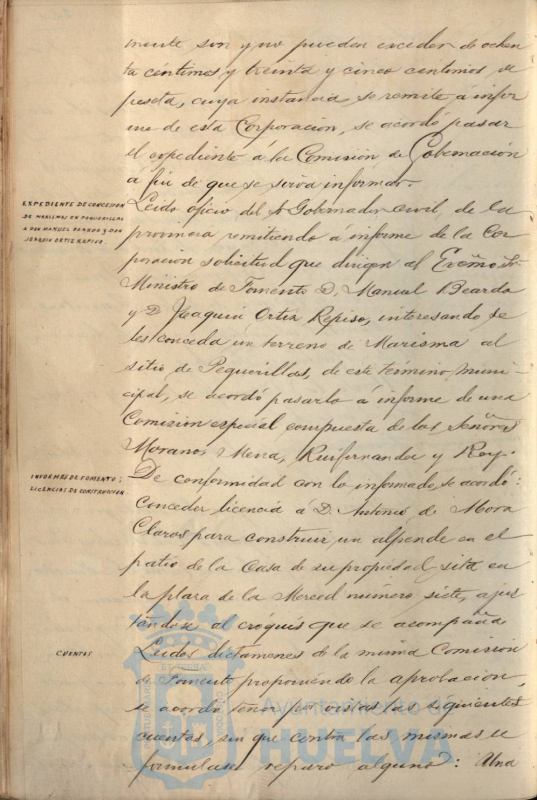 mente son y no pueden exceder de ochen
ta céntimos y treinta y cinco centimos de
peseta, cuya instancia se remite á infor
me de esta Corporacion, se acordó pasar
el expediente á la Comisión de Gobernación
a fin de que se sirva informar.
EXPEDIENTE DE CONCESION
DE MARISMAS EN PEGUERILLAS
A DON MANUEL BEARDO Y DON
JOAQUIN ORTIZ RAPISO.
Leido oficio del Sr Gobernador civil, de la
provincia remitiendo á informe de la Cor
poracion solicitud que dirigen al Excmo Sr.
Ministro de Fomento D. Manuel Beardo
y D. Joaquin Ortiz Repiso, interesando se
les conceda un terreno de Marisma al
sitio de Peguerillas, de este término muni-
cipal, se acordó pasarla á informe de una
Comision especial compuesta de los Señores
Morano, Mena, Ruifernandez y Rey.
INFORMES DE FOMENTO:
LICENCIAS DE CONSTRUCCION
De conformidad con lo informado, se acordó:
Conceder licencia á D. Antonio de Mora
Claros para construir un alpende en el
patio de la Casa de su propiedad sita en
la plaza de la Merced número siete, ajus
tandose al cróquis que se acompaña
CUENTAS
Leidos dictamenes de la misma Comision
de Fomento proponiendo la aprobacion,
se acordó tener por vistas las siguientes
cuentas, sin que contra las mismas se
formulase reparo alguno: Una
Ayuntamiento de
HUELVA